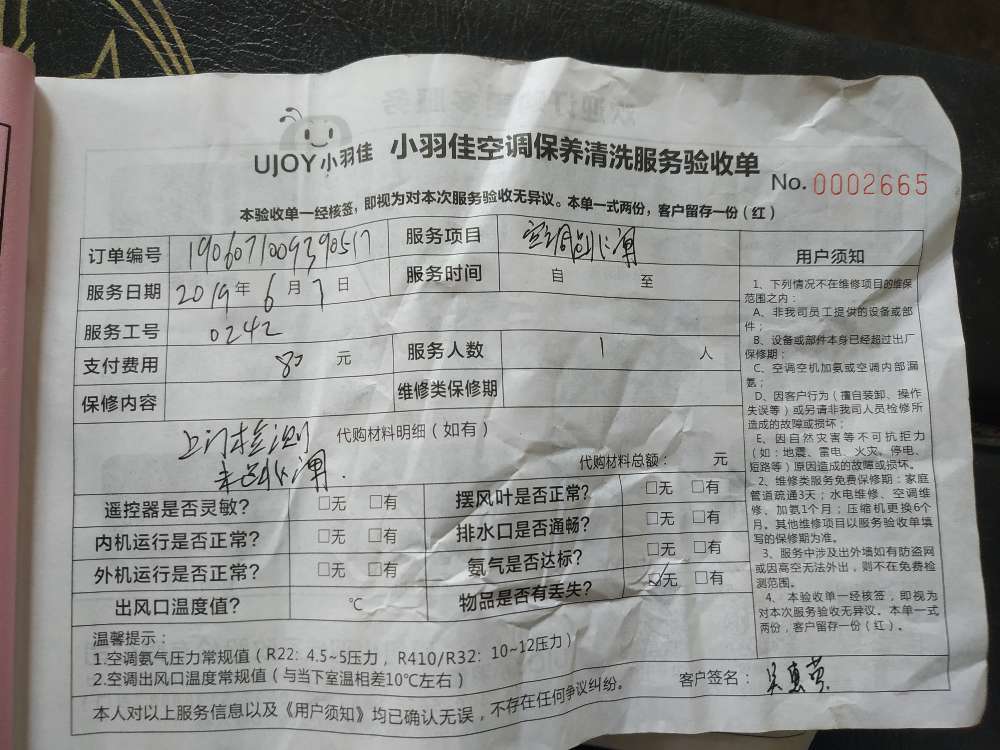 UJOY小羽佳 小羽佳空调保养清洗服务验收单
No. 0002665
本验收单一经核签，即视为对本次服务验收无异议。本单一式两份，客户留存一份（红）
订单编号 1906071009390517 服务项目
服务日期 2019年6月7日 服务时间 自 至
服务工号 0242
支付费用 80 元 服务人数 1 人
保修内容 维修类保修期
上门检测 代购材料明细（如有）
代购材料总额： 元
遥控器是否灵敏？ □无 □有 摆风叶是否正常？ □无 □有
内机运行是否正常？ □无 □有 排水口是否通畅？ □无 □有
外机运行是否正常？ □无 □有 氨气是否达标？ □无 □有
出风口温度值？ ℃ 物品是否有丢失？ ☑无 □有
温馨提示：
1.空调氨气压力常规值（R22：4.5~5压力，R410/R32：10~12压力）
2.空调出风口温度常规值（与当下室温相差10℃左右）
客户签名：吴惠
本人对以上服务信息以及《用户须知》均已确认无误，不存在任何争议纠纷。
用户须知
1、下列情况不在维修项目的维保
范围之内：
A、非我司员工提供的设备或部
件；
B、设备或部件本身已经超过出厂
保修期；
C、空调空机加氨或空调内部漏
氨；
D、因客户行为（擅自装卸、操作
失误等）或另请非我司人员检修所
造成的故障或损坏；
E、因自然灾害等不可抗拒力
（如：地震、雷电、火灾、停电、
短路等）原因造成的故障或损坏。
2、维修类服务免费保修期：家庭
管道疏通3天；水电维修、空调维
修、加氨1个月；压缩机更换6个
月。其他维修项目以服务验收单填
写的保修期为准。
3、服务中涉及出外墙如有防盗网
或因高空无法外出，则不在免费检
测范围。
4、本验收单一经核签，即视为
对本次服务验收无异议。本单一式
两份，客户留存一份（红）。